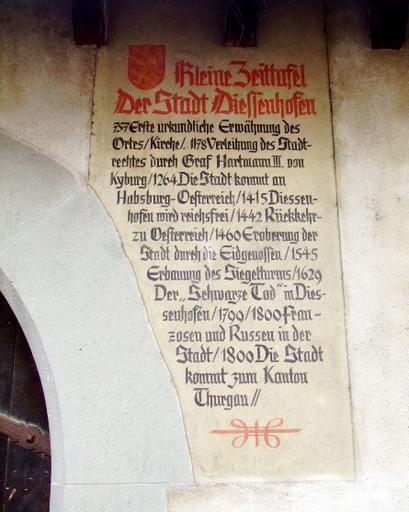 Kleine Zeittafel
Der Stadt Diessenhofen
757 Erste urkundliche Erwähnung des
Ortes/Kirche/. 1178 Verleihung des Stadt-
rechtes durch Graf Hartmann III. von
Kyburg/1264 Die Stadt kommt an
Habsburg-Oesterreich/1415 Diessen-
hofen wird reichsfrei/1442 Rückkehr-
zu Oesterreich/1460 Eroberung der
Stadt durch die Eidgenossen/1545
Erbauung des Siegelturms/1629
Der „Schwarze Tod" in Dies-
senhofen/1799/1800 Fran-
zosen und Russen in der
Stadt/1800 Die Stadt
kommt zum Kanton
Thurgau//